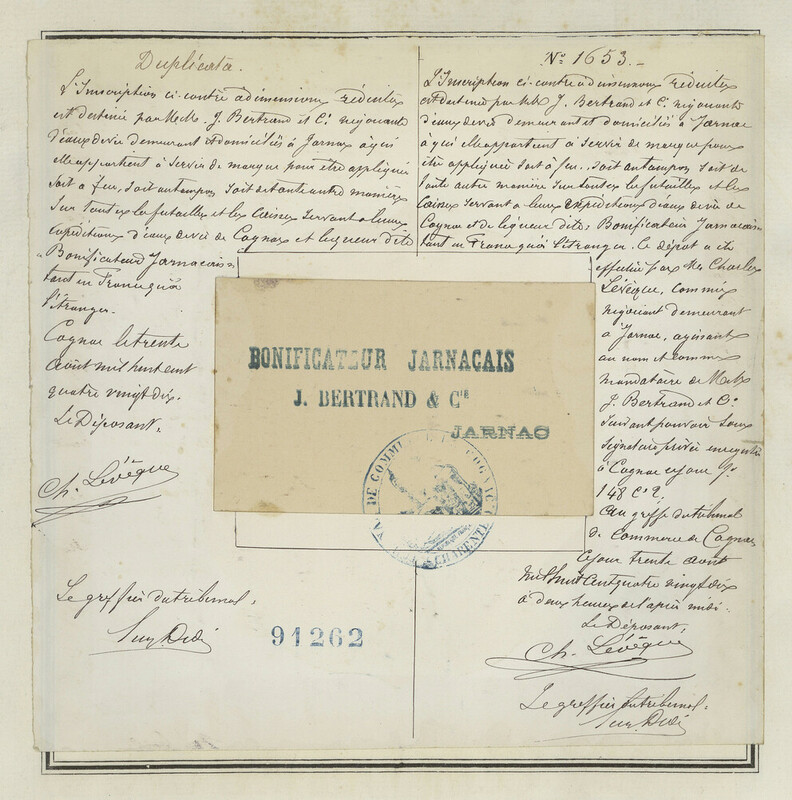 Duplicata.
L'Inscription ci-contre à dimensions réduites
est destinée par M.M. J. Bertrand et Cie négociants
d'eaux de vie demeurant et domiciliés à Jarnac à qui
elle appartient à servir de marque pour être appliquée
soit à feu, soit au tampon, soit de toute autre manière
sur toutes les futailles et les caisses servant à leurs
expéditions d'eaux de vie de Cognac et liqueur dite
"Bonificateur Jarnacais"
tant en France qu'à
l'étranger.
Cognac le trente
août mil huit cent
quatre vingt dix.
Le Déposant,
Ch. Lévêque
Le greffier du tribunal,
No 1653.
L'Inscription ci-contre à dimensions réduites
est destinée par M.M. J. Bertrand et Cie négociants
d'eaux de vie demeurant et domiciliés à Jarnac
à qui elle appartient à servir de marque pour
être appliquée soit à feu, soit au tampon soit de
toute autre manière sur toutes les futailles et les
caisses servant à leurs expéditions d'eaux de vie de
Cognac et de liqueur dite, Bonificateur Jarnacais
tant en France qu'à l'étranger. Ce dépôt a été
effectué par Mr Charles
Lévêque, commis
négociant demeurant
à Jarnac, agissant
au nom et comme
mandataire de
J. Bertrand et Cie
suivant pouvoir sous
signature privée enregistré
à Cognac ce jour fo
148 c 2,
Au greffe du tribunal
de Commerce de Cognac
ce jour trente août
mil huit cent quatre vingt dix
à deux heures de l'après midi.
Le Déposant,
Ch. Lévêque
Le greffier du tribunal,
BONIFICATEUR JARNACAIS
J. BERTRAND & CIE
JARNAC
DE COMMERCE DE COGNAC
CHARENTE
91262